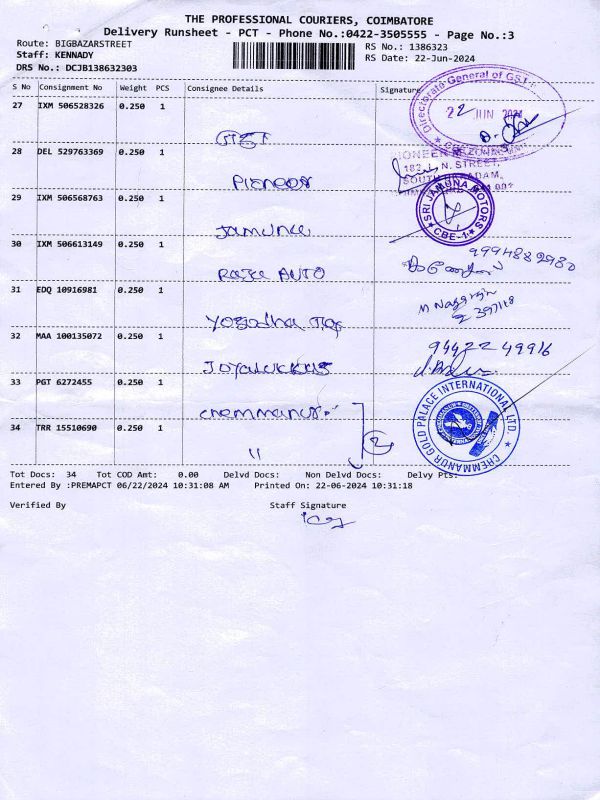 THE PROFESSIONAL COURIERS, COIMBATORE
Delivery Runsheet - PCT - Phone No.:0422-3505555 - Page No.:3
Route: BIGBAZARSTREET RS No.: 1386323
Staff: KENNADY RS Date: 22-Jun-2024
DRS No.: DCJB138632303
S No Consignment No Weight PCS Consignee Details Signature
27 IXM 506528326 0.250 1 GST Directorate General of GST 22 JUN 2024
28 DEL 529763369 0.250 1 Pioneer PIONEER
182, L. N. STREET,
29 IXM 506568763 0.250 1 Jamuna SRI JAMUNA MOTORS CBE-1
30 IXM 506613149 0.250 1 Raja AUTO 9994882980
31 EDQ 10916981 0.250 1 M Nagaraj
32 MAA 100135072 0.250 1 Joyalukkas 94422 49916
33 PGT 6272455 0.250 1 Chemmanur CHEMMANUR GOLD PALACE INTERNATIONAL LTD.
34 TRR 15510690 0.250 1 11 2
Tot Docs: 34 Tot COD Amt: 0.00 Delvd Docs: Non Delvd Docs: Delvy Pts:
Entered By :PREMAPCT 06/22/2024 10:31:08 AM Printed On: 22-06-2024 10:31:18
Verified By Staff Signature